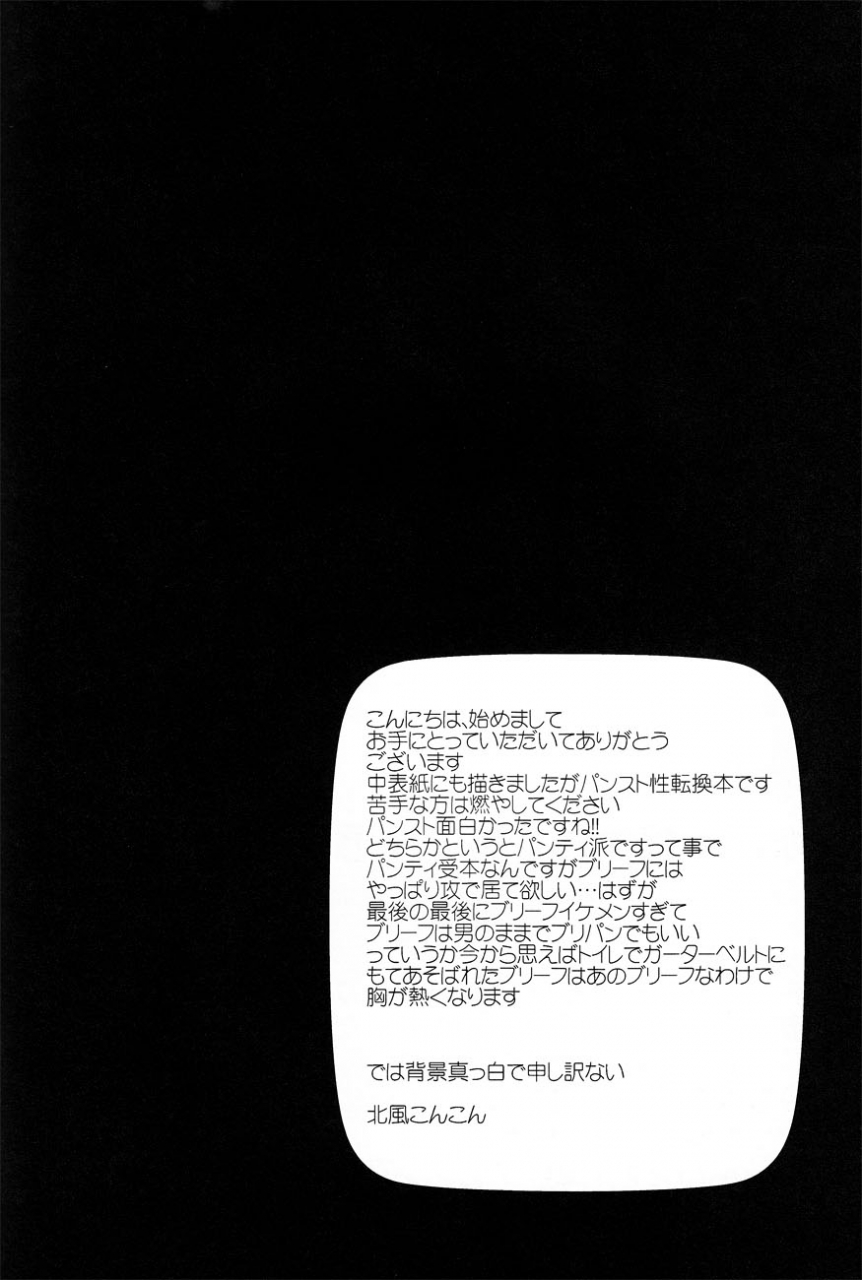 こんにちは、始めまして
お手にとっていただいてありがとう
ございます
中表紙にも描きましたがパンスト性転換本です
苦手な方は燃やしてください
パンスト面白かったですね!!
どちらかというとパンティ派ですって事で
パンティ受本なんですがブリーフには
やっぱり攻で居て欲しい…はずが
最後の最後にブリーフイケメンすぎて
ブリーフは男のままでブリパンでもいい
っていうか今から思えばトイレでガーターベルトに
もてあそばれたブリーフはあのブリーフなわけで
胸が熱くなります
では背景真っ白で申し訳ない
北風こんこん